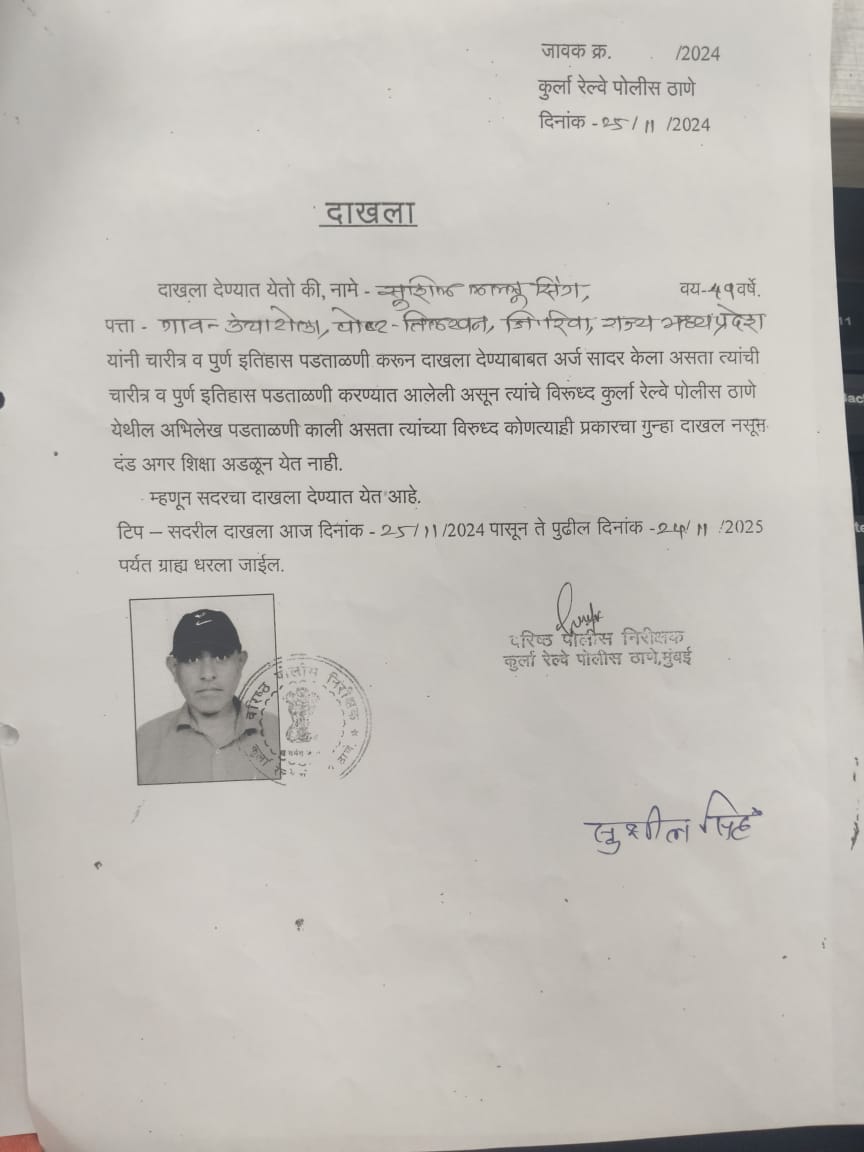 जावक क्र. /2024
कुर्ला रेल्वे पोलीस ठाणे
दिनांक - २५/11 /2024
दाखला
दाखला देण्यात येतो की, नामे - सुशिल लल्लू सिंग, वय-४९ वर्षे.
पत्ता - गाव- उंचाटोला, पोष्ट-तिलखन, जि-रिवा, राज्य मध्यप्रदेश
यांनी चारीत्र व पुर्ण इतिहास पडताळणी करून दाखला देण्याबाबत अर्ज सादर केला असता त्यांची
चारीत्र व पुर्ण इतिहास पडताळणी करण्यात आलेली असून त्यांचे विरूध्द कुर्ला रेल्वे पोलीस ठाणे
येथील अभिलेख पडताळणी काली असता त्यांच्या विरुध्द कोणत्याही प्रकारचा गुन्हा दाखल नसून
दंड अगर शिक्षा अडळून येत नाही.
म्हणून सदरचा दाखला देण्यात येत आहे.
टिप – सदरील दाखला आज दिनांक - २५/11/2024 पासून ते पुढील दिनांक -२४/11 /2025
पर्यत ग्राह्य धरला जाईल.
वरिष्ठ पोलीस निरीक्षक
कुर्ला रेल्वे पोलीस ठाणे,मुंबई
वरिष्ठ पोलीस निरीक्षक
कुर्ला ठाणे.
सुशील सिंह